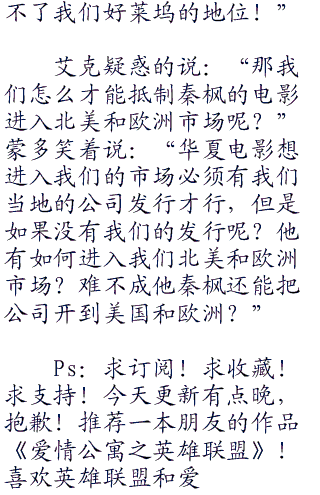 不了我们好菜坞的地位！”
艾克疑惑的说：“那我
们怎么才能抵制秦枫的电影
进入北美和欧洲市场呢？”
蒙多笑着说：“华夏电影想
进入我们的市场必须有我们
当地的公司发行才行，但是
如果没有我们的发行呢？他
有如何进入我们北美和欧洲
市场？难不成他秦枫还能把
公司开到美国和欧洲？”
Ps：求订阅！求收藏！
求支持！今天更新有点晚，
抱歉！推荐一本朋友的作品
《爱情公寓之英雄联盟》！
喜欢英雄联盟和爱